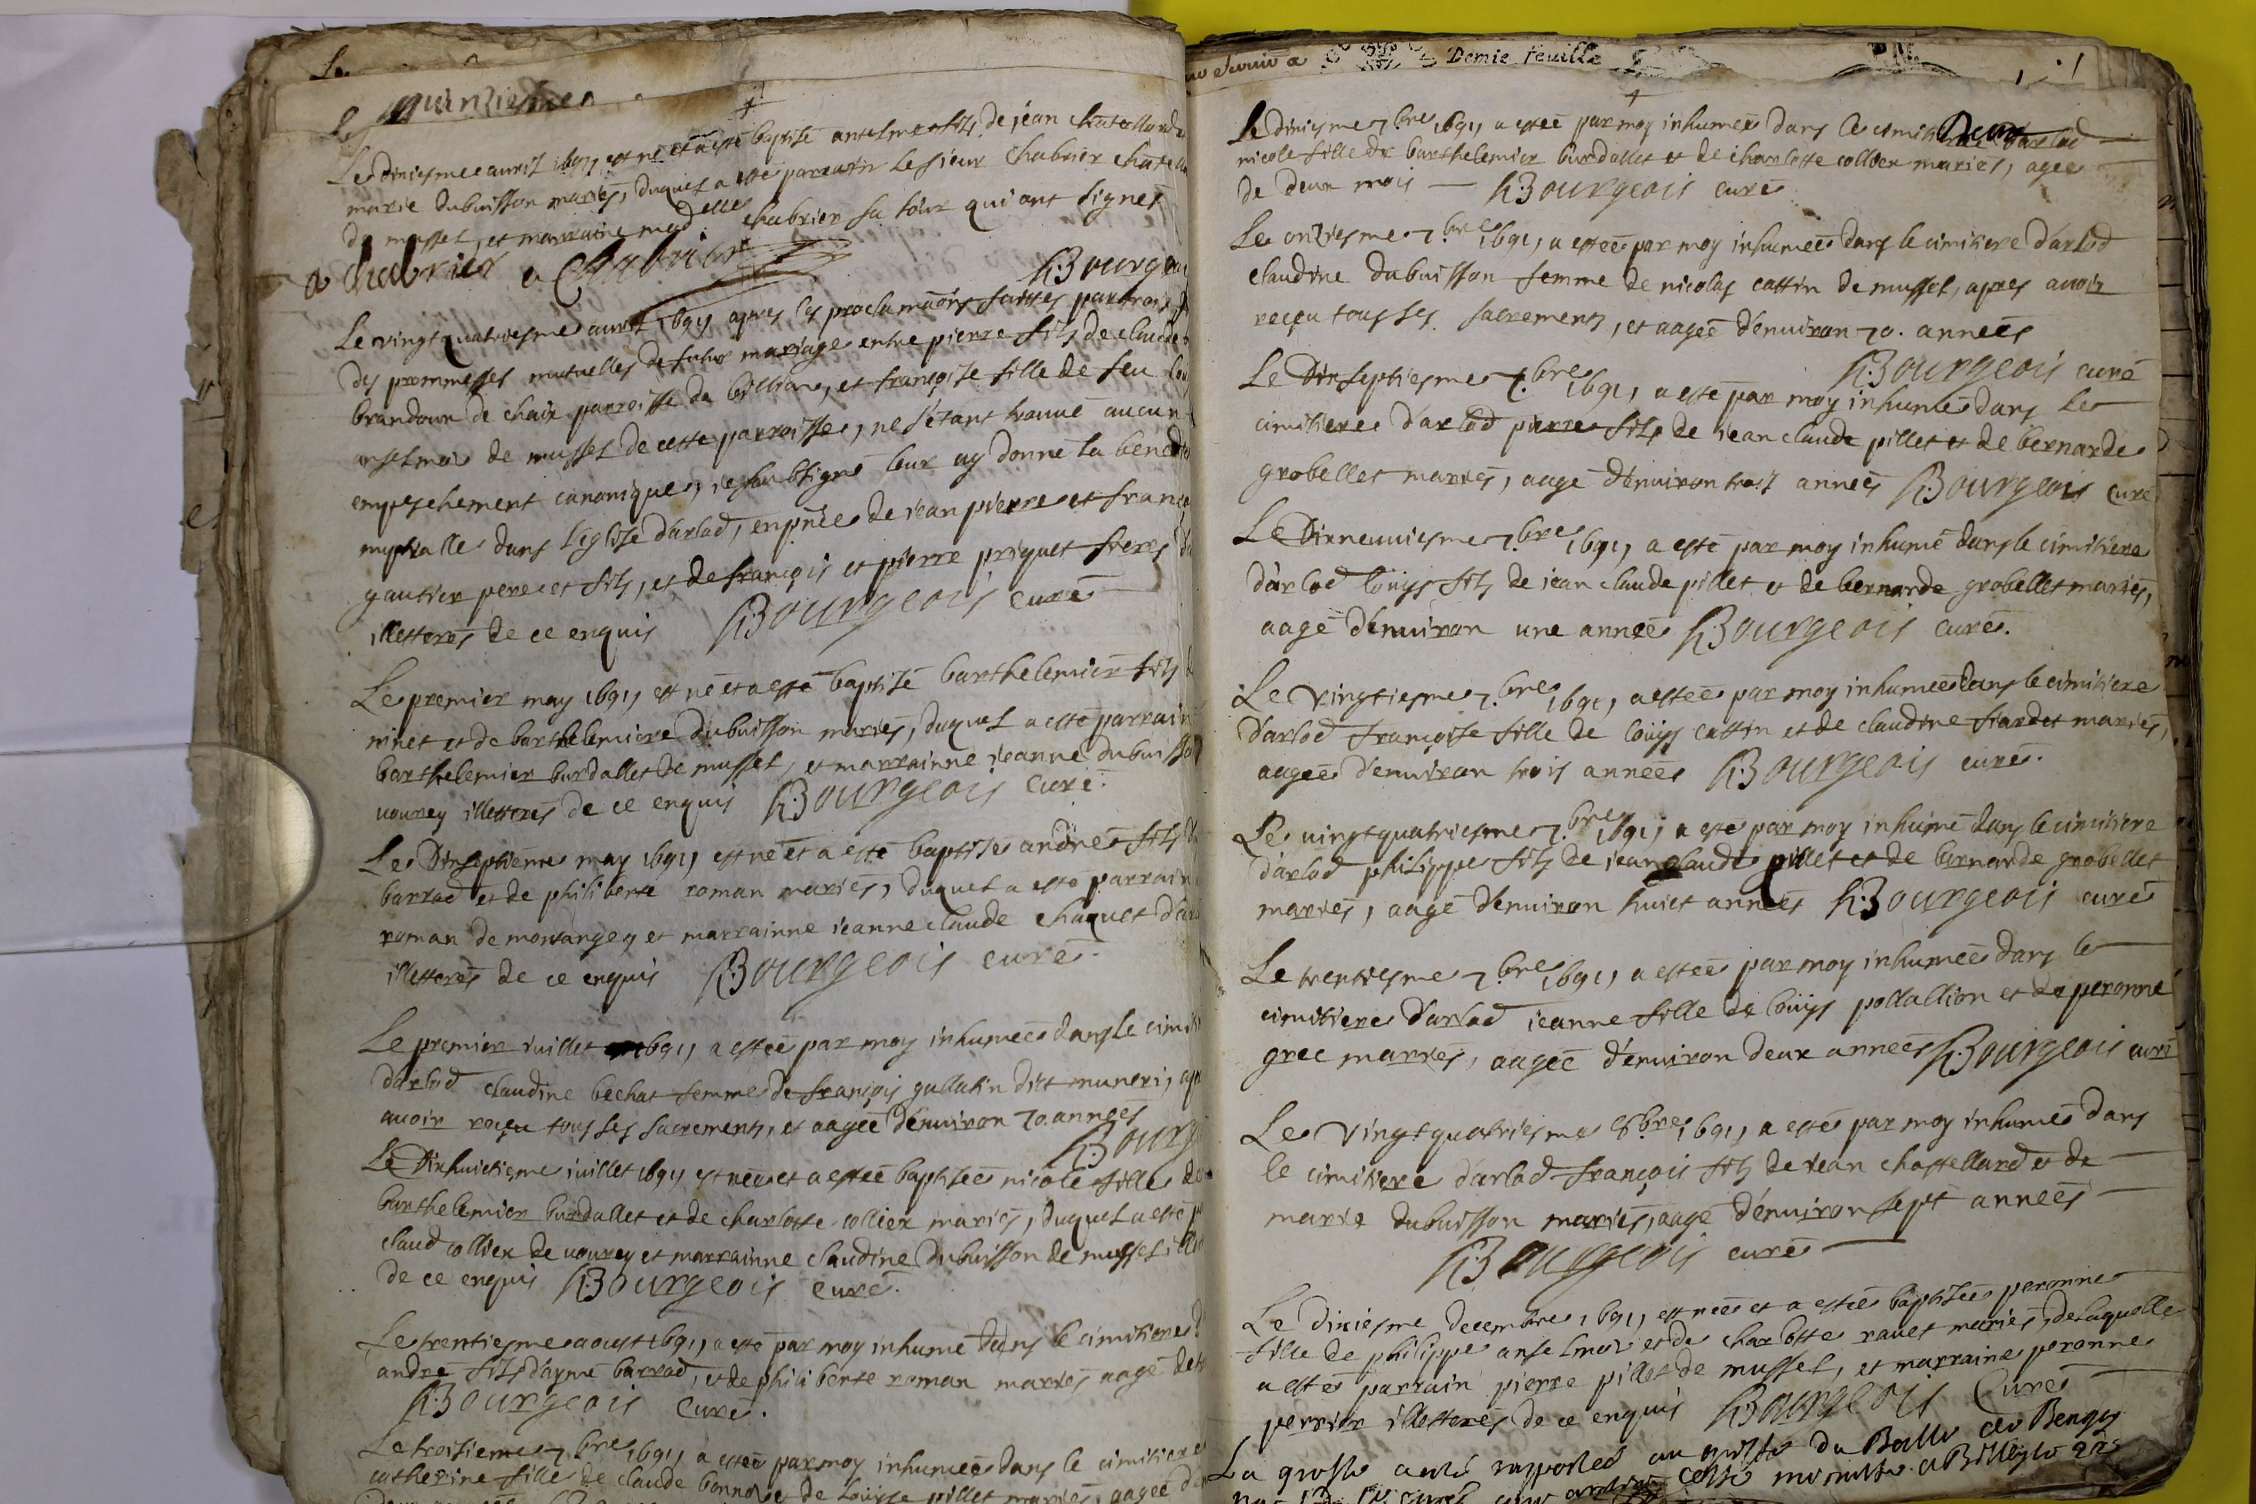 Le
quinziesme
Le dixiesme auril 1691 est né et a esté baptisé anselme fils de jean chatellard
marie dubuisson mariés, duquel a esté parrain le sieur chabrier
de mussel, et marraine madelle chabrier sa sœur qui ont signés
a Chabrier a Chabrier
h:Bourgeois
Le vingtquatriesme auril 1691 apres les proclamaons faittes par trois
des prommesses mutuelles de futur mariage entre pierre fils de claude
brandoux de chaix parroisse de billiat, et françoise fille de feu
anselmoz de mussel de cette parroisse, ne s'étant trouué aucun
empeschement canonique, ie soubsigné leur ay donné la
nuptialle dans l'eglise d'arlod, en pñce de iean pierre et
gautier pere et fils, et de françois et pierre priquet freres
illetterés de ce enquis h:Bourgeois curé
Le premier may 1691 est né et a esté baptisé barthelemier fils
ninet et de barthelemiere dubuisson mariés, duquel a esté parrain
barthelemier burdallet de mussel, et marrainne ieanne dubuisson
vouvrey illetterés de ce enquis h:Bourgeois curé.
Le Dixseptiéme may 1691 est né et a esté baptisé andré fils
barrad et de philiberte roman mariés, duquel a esté parrain
roman de montangey et marrainne ieanne claude chaquet
illetterés de ce enquis h:Bourgeois curé.
Le premier iuillet 1691, a esteé par moy inhumeé dans le
d'arlod claudine bechat femme de françois gallatin dit muneri,
avoir reçeu tous ses sacrements, et aageé d'énuiron 70. anneés
h:Bourg
Le Dixhuictiéme iuillet 1691 est neé et a esteé baptiseé nicole fille de
barthelemier burdallet et de charlotte collier mariés, duquel a esté
claud collier de vouvrey et marrainne claudine dubuisson de mussel
de ce enquis h:Bourgeois curé.
Le trentiesme aoust 1691, a esté par moy inhumé dans le cimitiere
andré fils d'aymé barrad, et de philiberte roman mariés aagé de
h:Bourgeois Curé.
Le troisiéme 7.bre 1691, a esteé par moy inhumeé dans le cimitiere
catherine fille de claude bonnot et de Louise pillet mariés, aageé
Demie feuille
Le dixiesme 7.bre 1691, a esteé par moy inhumeé dans le cimitiere d'arlod
nicole fille de barthelemier burdallet et de charlotte collier mariés, ageé
de deux mois h:Bourgeois curé
Le onziesme 7.bre 1691, a esteé par moy inhumeé dans le cimitiere d'arlod
claudine dubuisson femme de nicolas cattin de mussel, apres auoir
reçeu tous ses sacrements, et aageé d'énuiron 70. anneés
h:Bourgeois curé
Le Dixseptiesme 7.bre 1691, a esté par moy inhumé dans le
cimitiere d'arlod pierre fils de iean claude pillet et de bernarde
grobellet mariés, aagé d'énuiron trois anneés h:Bourgeois curé
Le Dixneuuiesme 7.bre 1691, a esté par moy inhumé dans le cimitiere
d'arlod loüys fils de iean claude pillet et de bernarde grobellet mariés,
aagé d'énuiron une anneé h:Bourgeois curé.
Le vingtiesme 7.bre 1691, a esteé par moy inhumeé dans le cimitiere
d'arlod françoise fille de loüys cattin et de claudine fiardet mariés,
aageé d'énuiron trois anneés h:Bourgeois curé.
Le vingtquatriesme 7.bre 1691, a esté par moy inhumé dans le cimitiere
d'arlod philippe fils de iean claude pillet et de bernarde grobellet
mariés, aagé d'énuiron huict anneés h:Bourgeois curé
Le trentiesme 7.bre 1691, a esteé par moy inhumeé dans le
cimitiere d'arlod ieanne fille de loüys pollallion et de peronne
grec mariés, aageé d'énuiron deux anneés h:Bourgeois curé
Le vingtquatriesme 8.bre 1691, a esté par moy inhumé dans
le cimitiere d'arlod françois fils de iean chastellard et de
marie dubuisson mariés, aagé d'énuiron sept anneés
h:Bourgeois curé
Le dixiesme decembre 1691, est neé et a esteé baptiseé peronne
fille de philippe anselmoz et de charlotte ravet mariés, de laquelle
a esté parrain pierre pillet de mussel, et marraine peronne
perrier illetterés de ce enquis h:Bourgeois Curé
La grosse a esté rapportée au greffe du